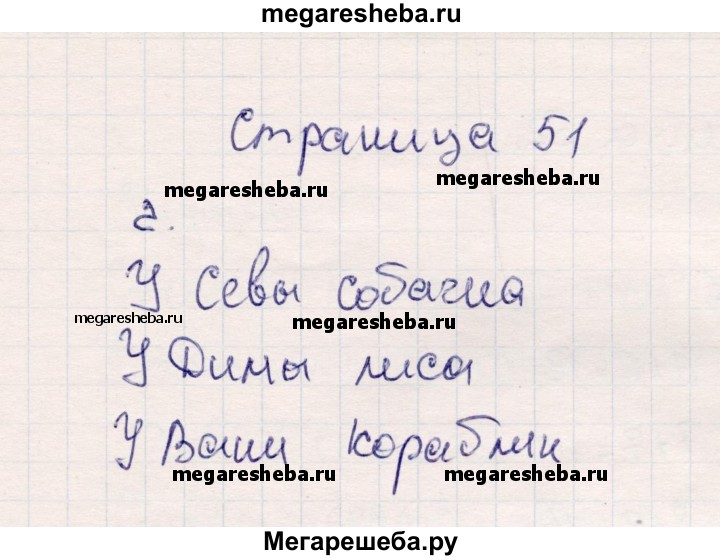 megaresheba.ru
Страница 51
megaresheba.ru
megaresheba.ru
2.
У Севы собачка
megaresheba.ru
megaresheba.ru
У Димы лиса
У Вани кораблик
megaresheba.ru
megaresheba.ru
Мегарешеба.ру